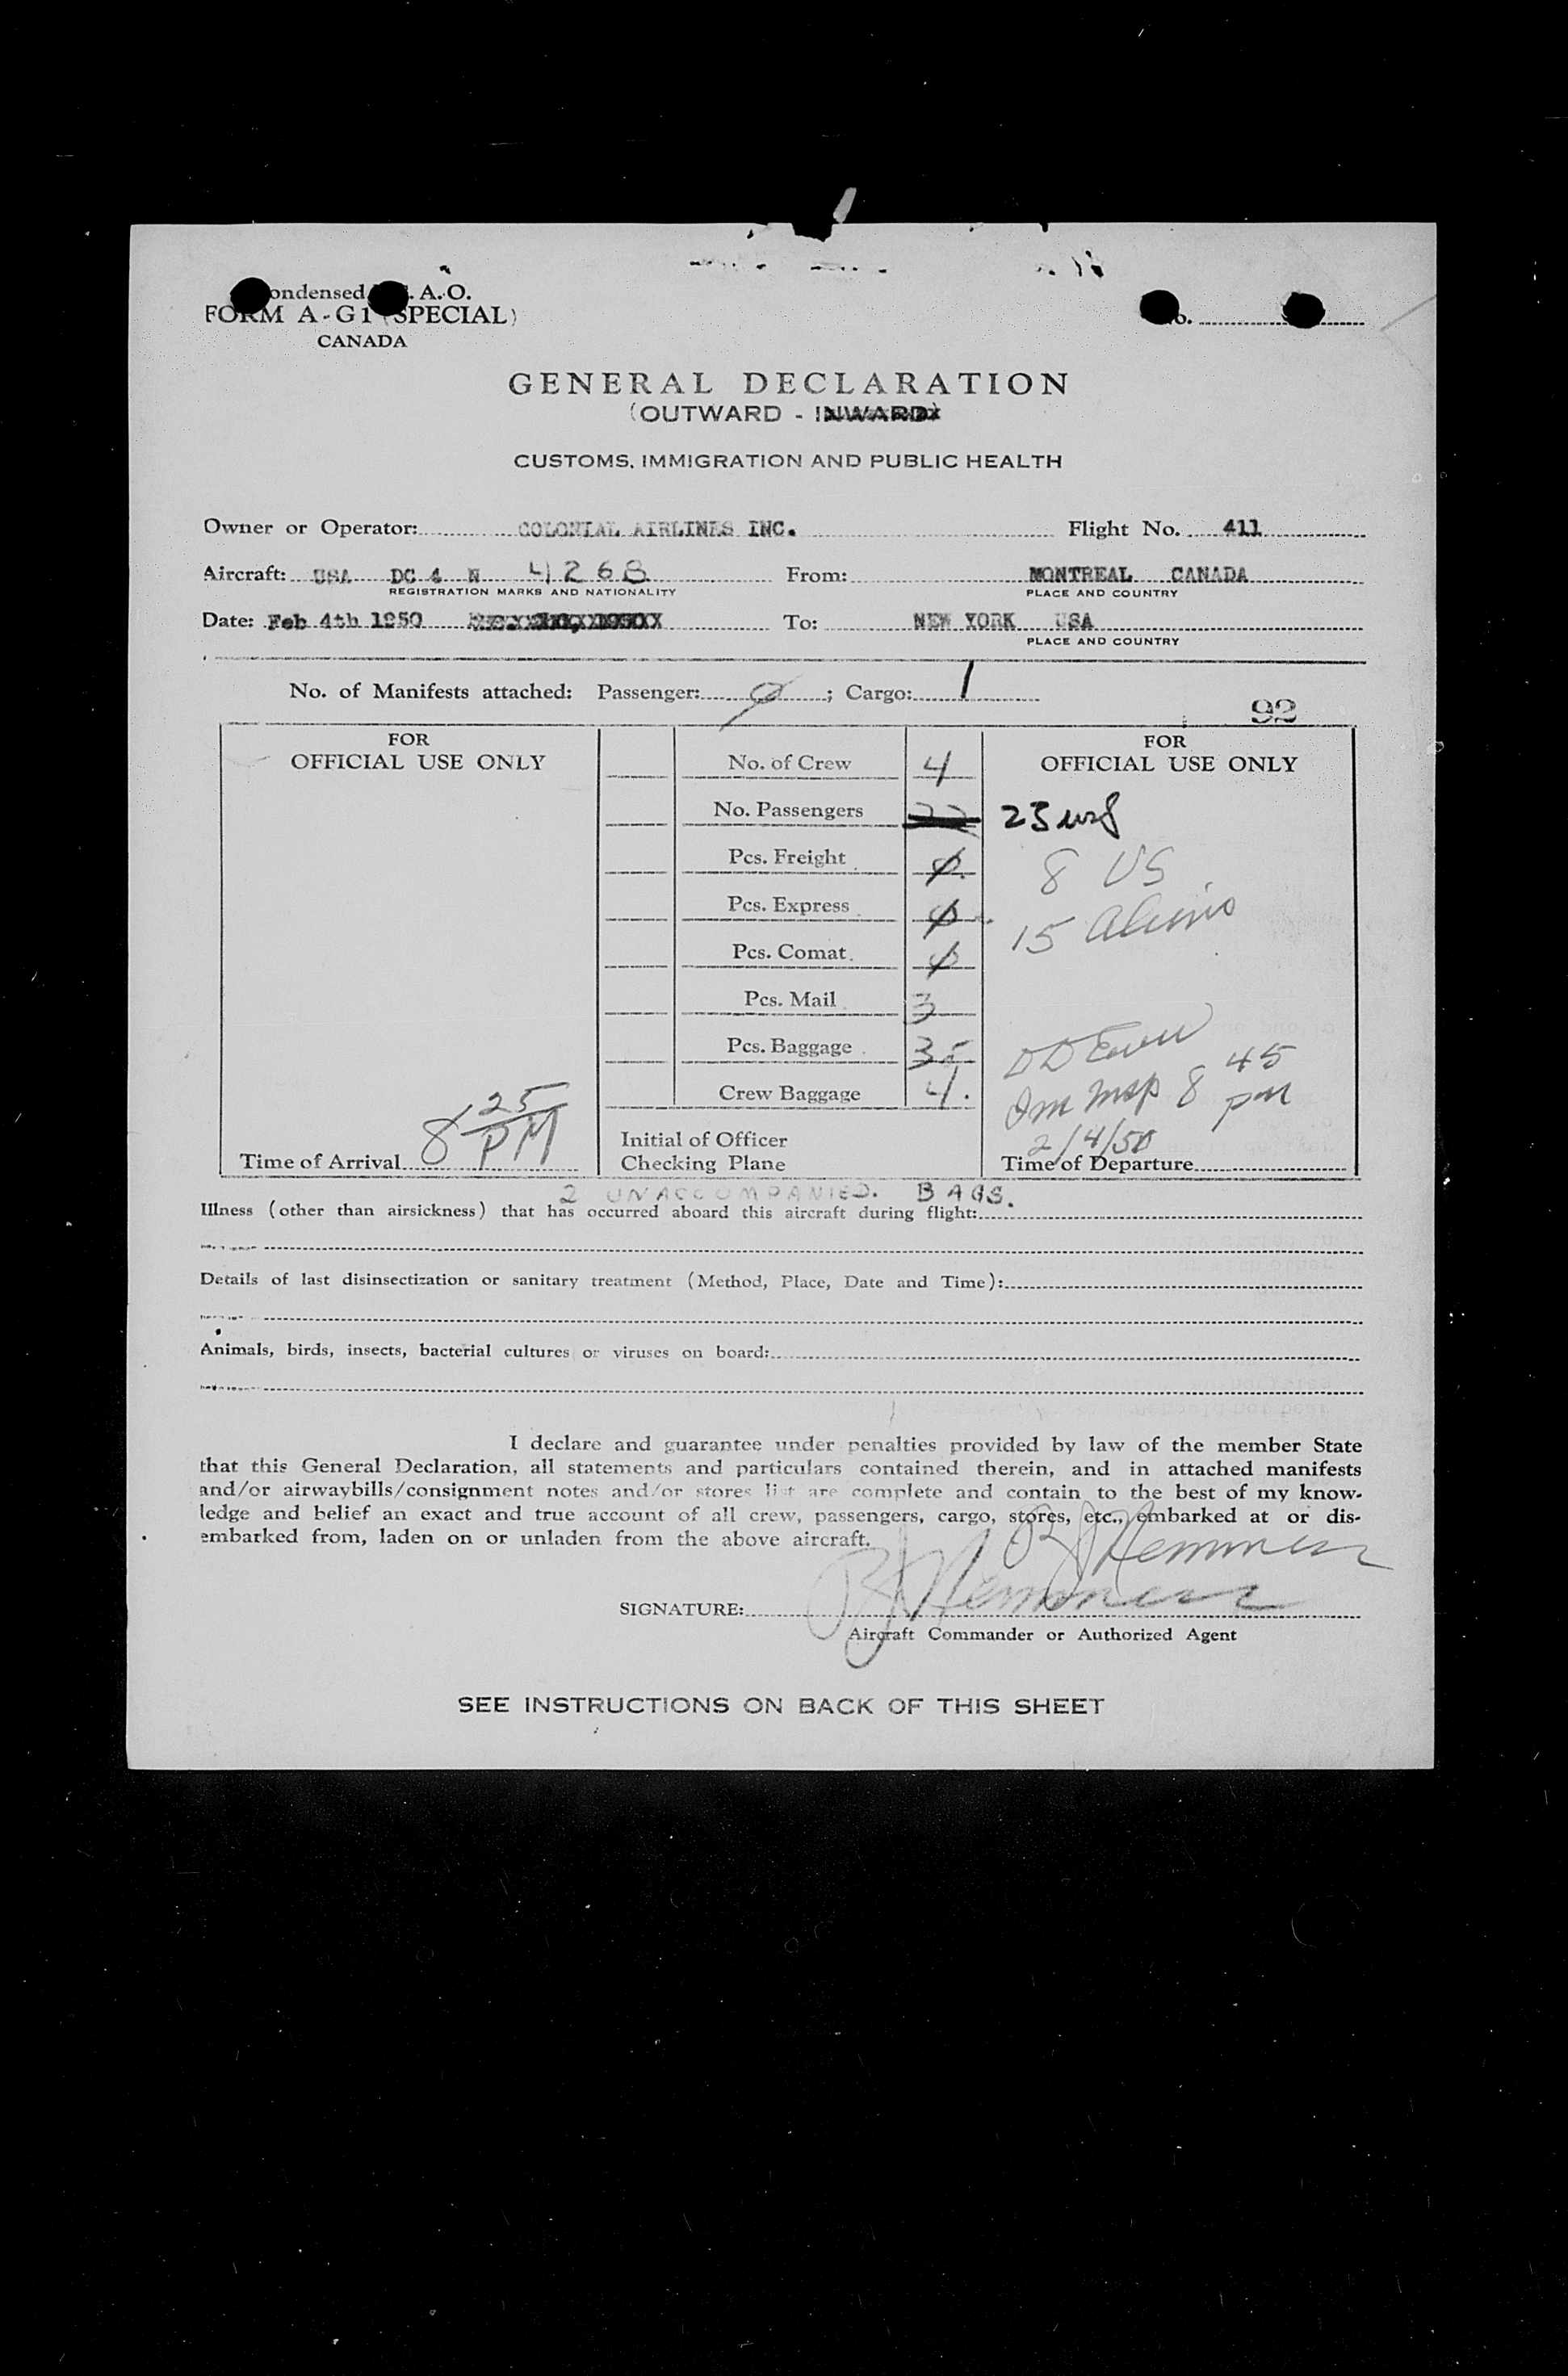 ondensed . A. O.
FORM A-G1 (SPECIAL)
CANADA
o.
GENERAL DECLARATION
(OUTWARD - INWARD)
CUSTOMS, IMMIGRATION AND PUBLIC HEALTH
Owner or Operator: COLONIAL AIRLINES INC. Flight No. 411
Aircraft: USA DC 4 N 4268 From: MONTREAL CANADA
REGISTRATION MARKS AND NATIONALITY PLACE AND COUNTRY
Date: Feb 4th 1950 To: NEW YORK USA
PLACE AND COUNTRY
No. of Manifests attached: Passenger: ø ; Cargo: 1
92
FOR
OFFICIAL USE ONLY
8 25 PM
Time of Arrival
No. of Crew 4
No. Passengers 22
Pcs. Freight ø.
Pcs. Express ø
Pcs. Comat. ø
Pcs. Mail 3
Pcs. Baggage 35
Crew Baggage 4.
Initial of Officer
Checking Plane
FOR
OFFICIAL USE ONLY
23
8 US
15 aliens
Imm Insp 8 45 pm
2/4/50
Time of Departure
2 UNACCOMPANIED. BAGS.
Illness (other than airsickness) that has occurred aboard this aircraft during flight:
Details of last disinsectization or sanitary treatment (Method, Place, Date and Time):
Animals, birds, insects, bacterial cultures or viruses on board:
I declare and guarantee under penalties provided by law of the member State
that this General Declaration, all statements and particulars contained therein, and in attached manifests
and/or airwaybills/consignment notes and/or stores list are complete and contain to the best of my know-
ledge and belief an exact and true account of all crew, passengers, cargo, stores, etc., embarked at or dis-
embarked from, laden on or unladen from the above aircraft.
SIGNATURE:
Aircraft Commander or Authorized Agent
SEE INSTRUCTIONS ON BACK OF THIS SHEET